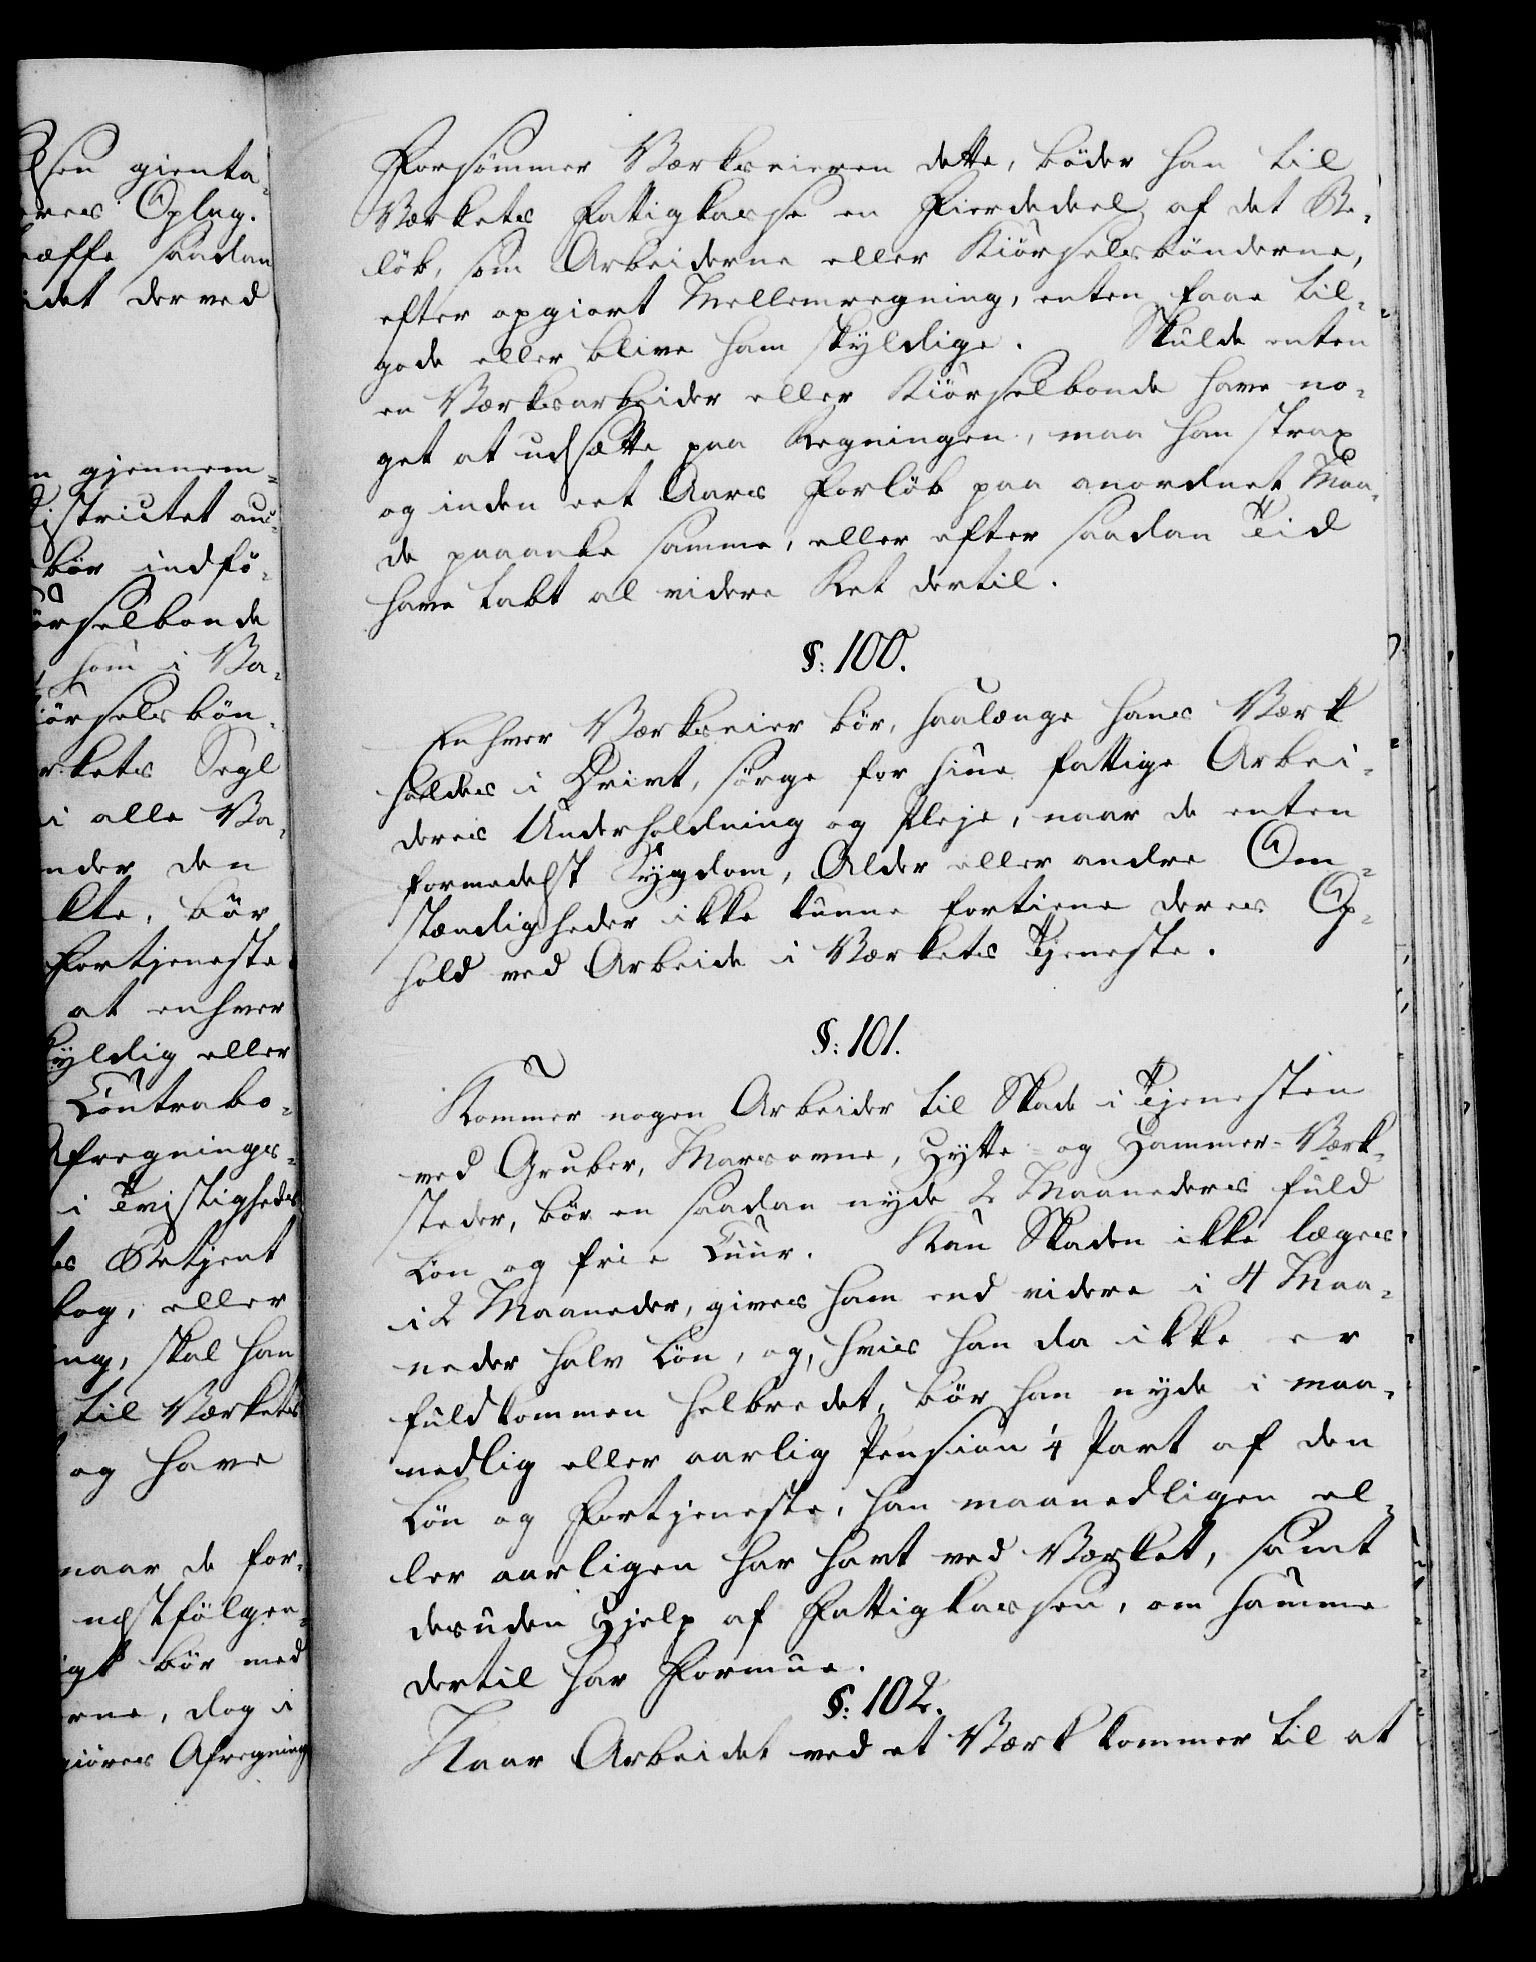 lsen gienta-
eres Oplag.
ræffe saadan
idet derved
n gjennem-
Districtet aus-
bör indfö-
örselbonde
, som i Ve-
iörselsbön-
rkets Segl
i alle Ve-
nder den
kke, bör
Fortjeneste
at enhver
kyldig eller
Contrabo-
Afregnings-
i Tvistigheds
ts Betjent
bog, eller
ng, skal han
til Værkets
og have
naar de for-
næstfölgen-
igt bör med
rne, dog i
giöres Afregning
Forsömmer Værkseieren dette, böder han til
Værkets Fattigkasse en Fierdedeel af det Be-
löb, som Arbeiderne eller Kiörselsbönderne,
efter opgiort Mellemregning, enten faae til-
gode eller blive ham skyldige. Skulde enten
en Værksarbeider eller Kiörselbonde have no-
get at udsætte paa Regningen, maa han strax
og inden eet Aars Forlöb paa anordnet Maa-
de paaanke samme, eller efter saadan Tid
have tabt al videre Ret dertil.
§: 100.
Enhver Værkseier bör, saalænge hans Værk
holdes i Drivt, sörge for sine fattige Arbei-
deres Underholdning og Pleje, naar de enten
formedelst Sygdom, Alder eller andre Om-
stændigheder ikke kunne fortiene deres Op-
hold ved Arbeide i Værkets Tjeneste.
§: 101.
Kommer nogen Arbeider til Skade i Tjenesten
ved Gruber, Marsovne, Hytte- og Hammer-Værk-
steder, bör en saadan nyde 2 Maaneders fuld
Lön og frie Cuur. Kan Skaden ikke læges
i 2 Maaneder, gives ham end videre i 4 Maa-
neder halv Lön, og, hvis han da ikke er
fuldkommen helbredet, bör han nyde i maa-
nedlig eller aarlig Pension ¼ Part af den
Lön og Fortjeneste, han maanedligen el-
ler aarligen har havt ved Værket, samt
desuden Hjelp af Fattigkassen, om samme
dertil har Formue.
§: 102.
Naar Arbeidet ved et Værk kommer til at